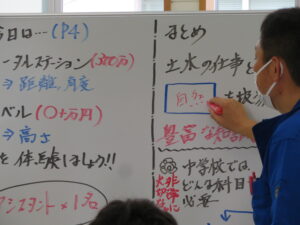 今日は…(P4)
ータルステーション(300万)
⇒距離、角度
ベル(〇十万円)
⇒高さ
を体験しましょう!!
シスタント×1名
まとめ
土木の仕事
自然
豊富な知
中学校では、
どんな科目
必要